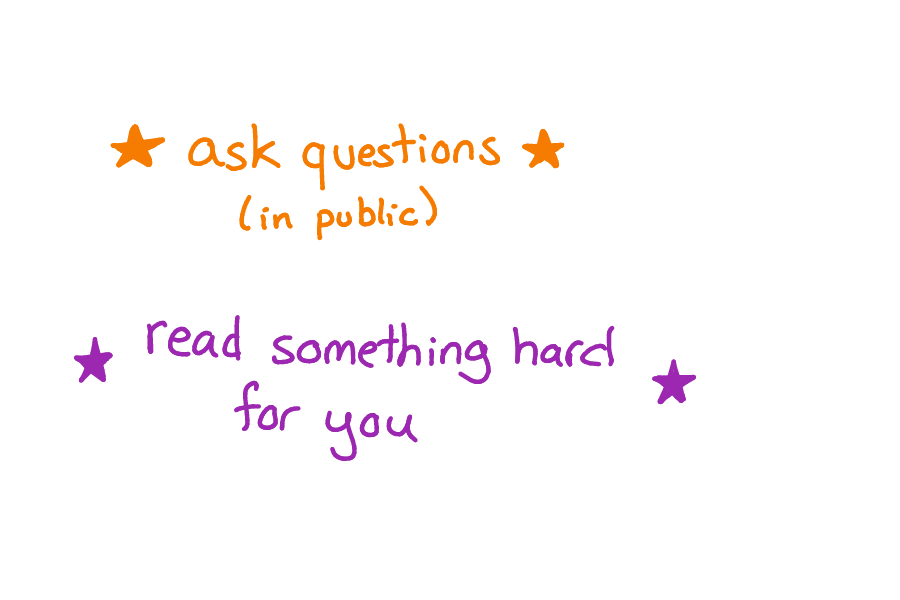 ask questions
(in public)
read something hard
for you